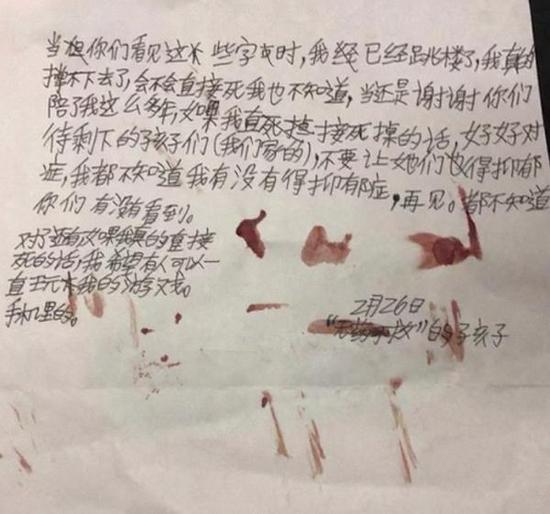 当你们看见这些字时,我经已经跳楼了,我真的
撑不下去了,会不会直接死我也不知道,当还是谢谢你们
陪了我这么多年,如果我直接死掉的话,好好对
待剩下的孩子们(我们家的),不要让她们也得抑郁
症,我都不知道我有没有得抑郁症,再见。都不知道
你们有没有看到。
对了还有如果我真的直接
死的话,我希望有人可以一
直玩我的游戏。
手机里的。
2月26日
的孩子